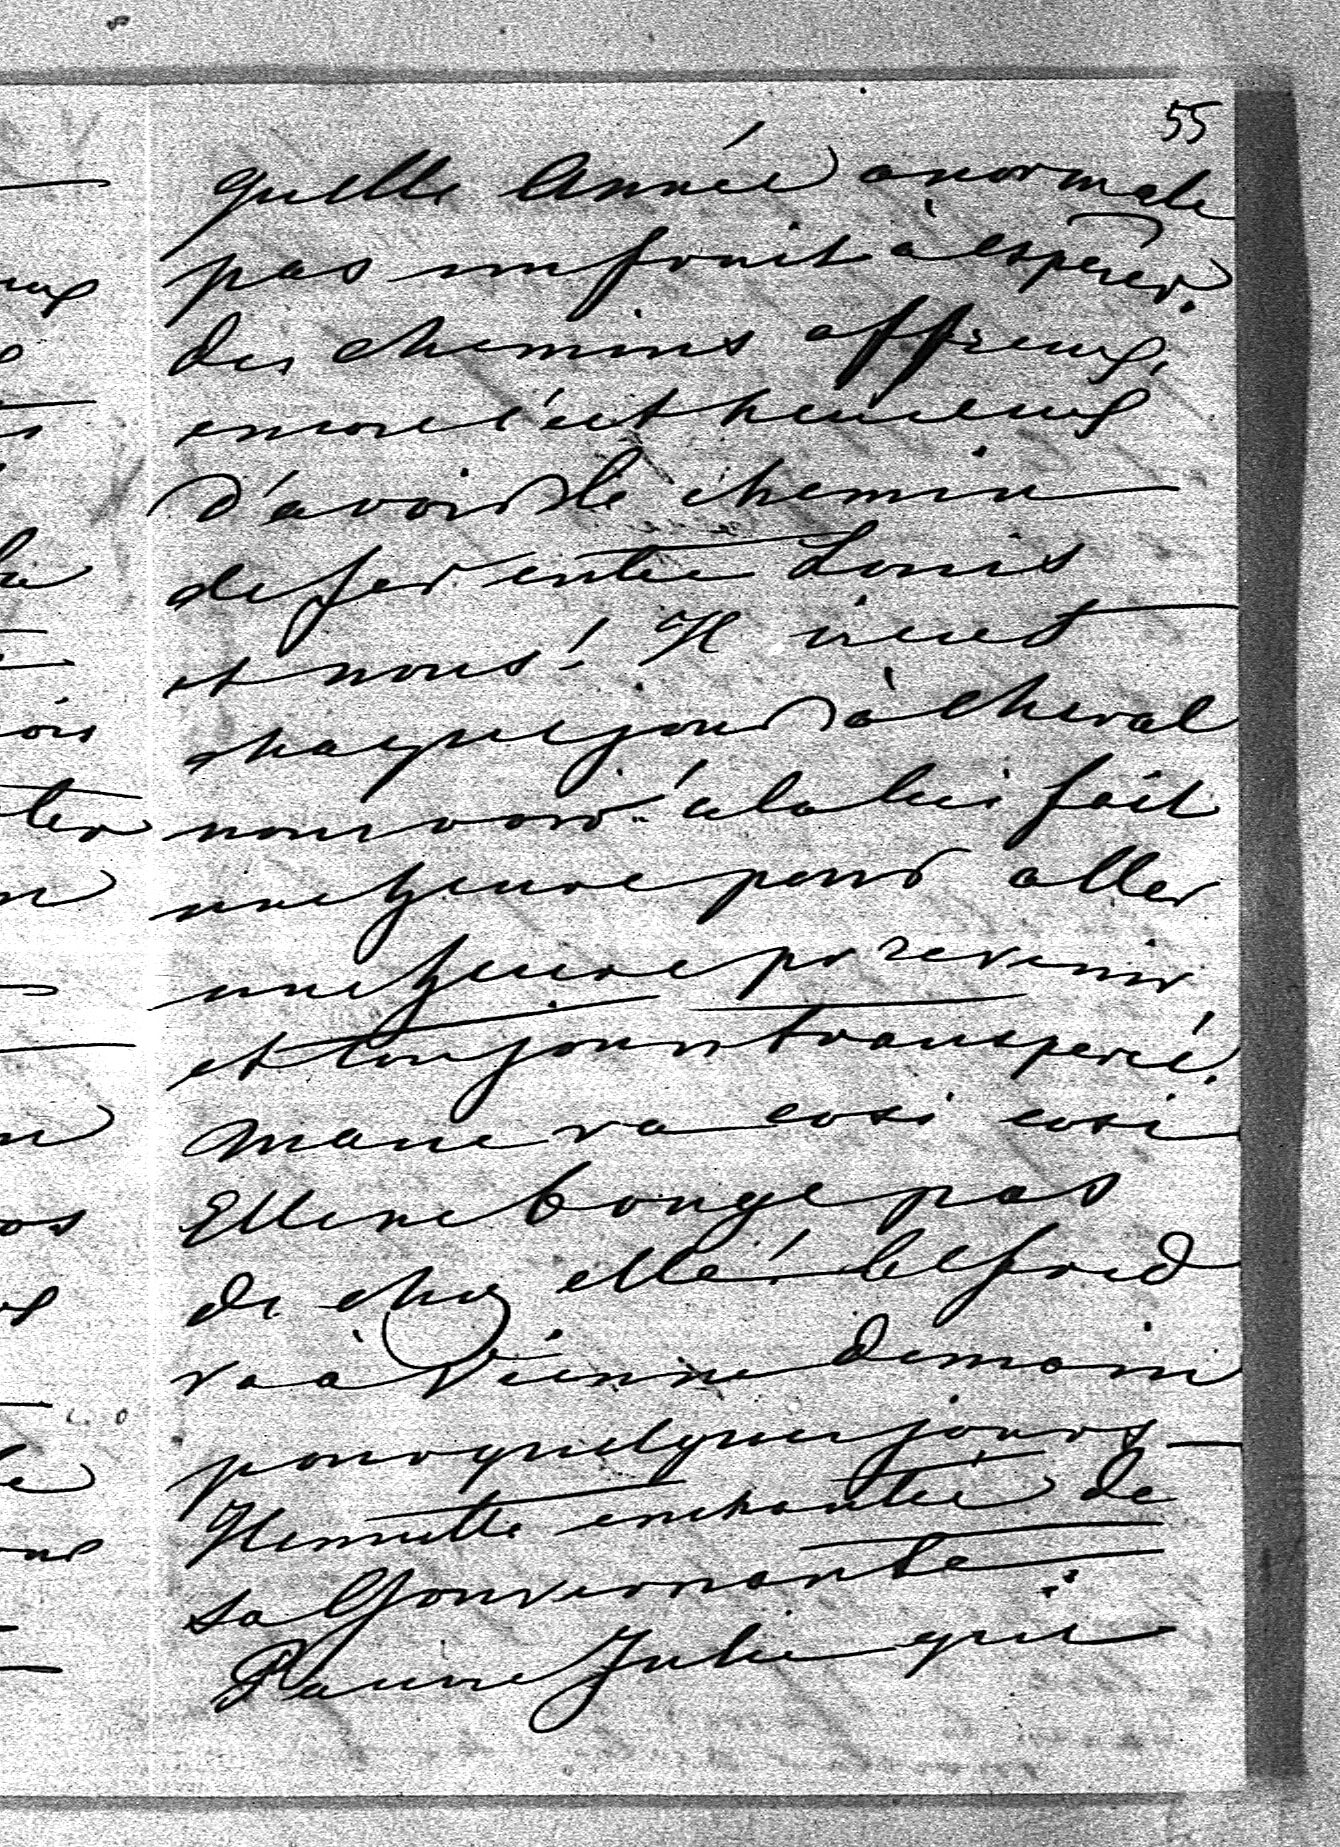 55
quelle Année anormale
pas un fruit à espérer.
des chemins affreux,
encore c'est heureux
d'avoir le chemin
de fer entre Louis
et nous! Il vient
chaque jour à cheval
nous voir! cela lui fait
une heure pour aller
une heure pr revenir
et toujours transpercé.
Marie va cosi cosi
Elle ne bouge pas
de chez elle!
va à Vienne demain
pour quelques jours —
Henriette enchantée de
sa Gouvernante
Pauvre Julie qui